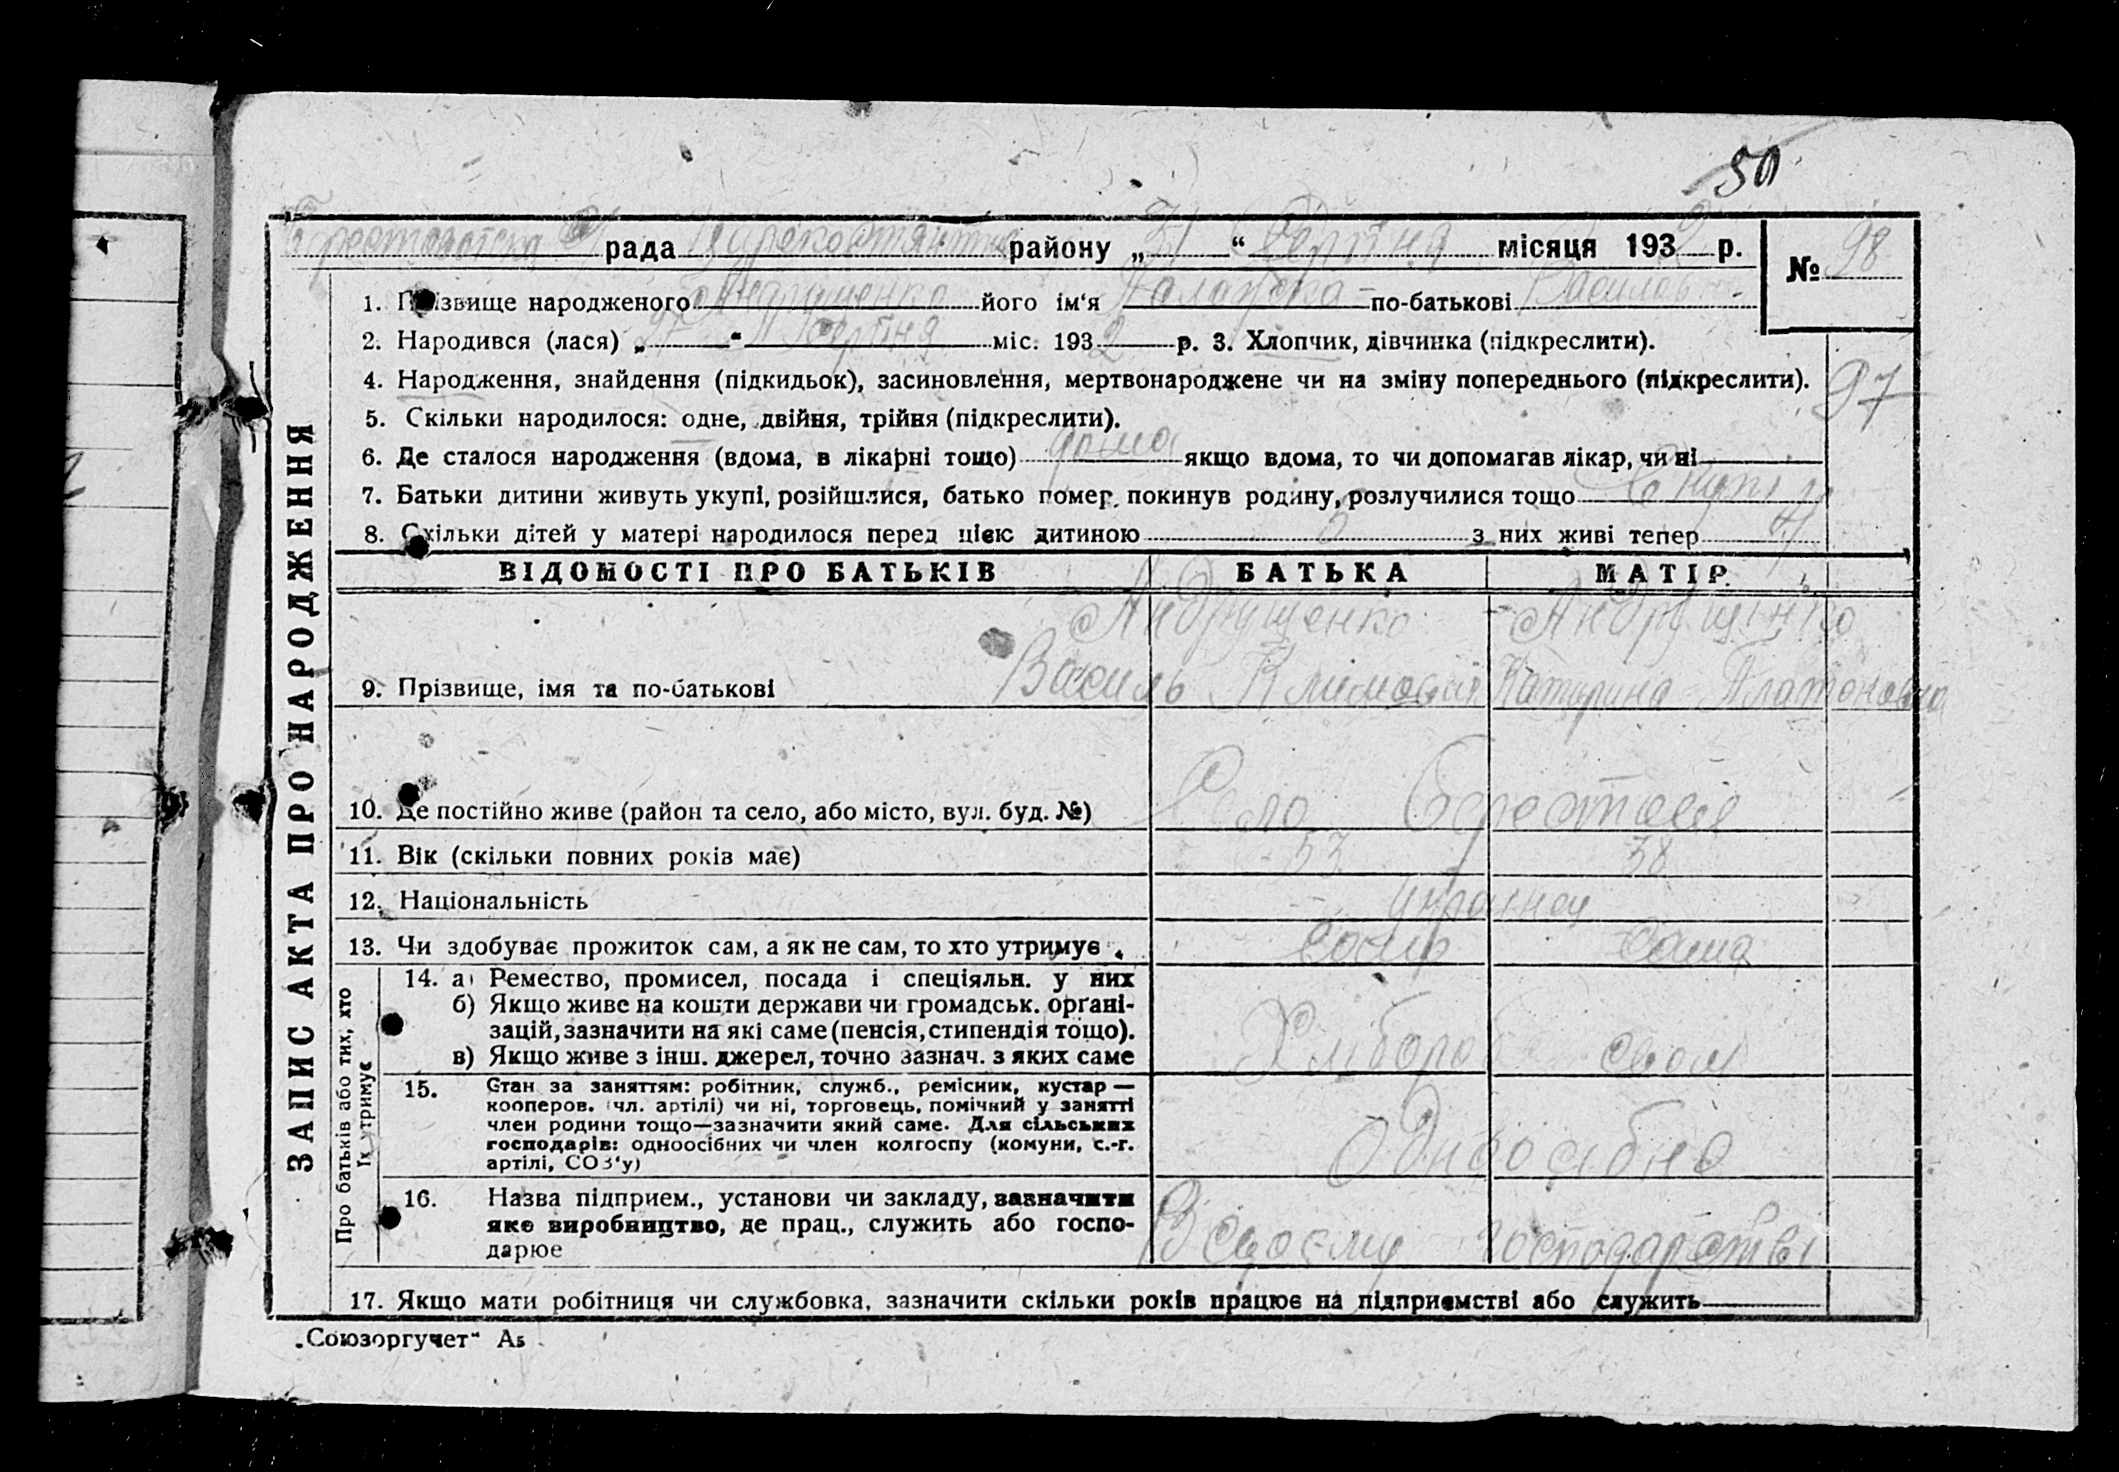 50
рада района „31“ Серпня місяця 1932 р.
№ 98
1. Прізвище народженого Андрущенко його ім‘я Палажка по-батькові
2. Народився (лася) „ “ Серпня міс. 1932 р. 3. Хлопчик, дівчинка (підкреслити).
4. Народження, знайдення (підкидьок), засиновлення, мертвонароджене чи на зміну попереднього (підкреслити).
97
5. Скільки народилося: одне, двійня, трійня (підкреслити).
6. Де сталося народження (вдома, в лікарні тощо) дома якщо вдома, то чи допомагав лікар, чи ні
7. Батьки дитини живуть укупі, розійшлися, батько помер, покинув родину, розлучилися тощо
8. Скільки дітей у матері народилося перед цією дитиною 5 з них живі тепер 4
ЗАПИС АКТА ПРО НАРОДЖЕННЯ
ВІДОМОСТІ ПРО БАТЬКІВ БАТЬКА МАТІР
Андрущенко Андрущінко
9. Прізвище, імя та по-батькові Василь Климович Катерина Платоновна
10. Де постійно живе (район та село, або місто, вул. буд. №) Село
11. Вік (скільки повних років має) 53 38
12. Національність українец
13. Чи здобуває прожиток сам, а як не сам, то хто утримує сам сама
Про батьків або тих, хто їх утримує
14. а) Ремество, промисел, посада і спеціяльн. у них
б) Якщо живе на кошти держави чи громадськ. орґані-
зацій, зазначити на які саме (пенсія, стипендія тощо).
в) Якщо живе з інш. джерел, точно зазнач. з яких саме Хлібороб
15. Стан за заняттям: робітник, служб., ремісник, кустар —
кооперов. (чл. артілі) чи ні, торговець, помічний у занятті
член родини тощо—зазначити який саме. Для сільських
господарів: одноосібних чи член колгоспу (комуни, с.-г.
артілі, СОЗ‘у) Одноосібно
16. Назва підприєм., установи чи закладу, зазначити
яке виробництво, де прац., служить або госпо-
дарює В своєму господарстві
17. Якщо мати робітниця чи службовка, зазначити скільки років працює на підприємстві або служить
„Союзоргучет“ А5